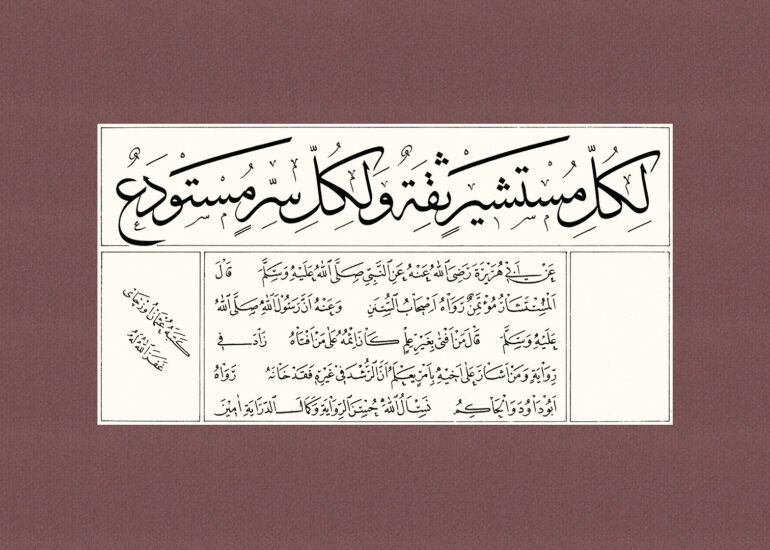 لِكُلِّ مُسْتَشِيرٍ ثِقَةٌ وَلِكُلِّ سِرٍّ مُسْتَوْدَعٌ
عَنْ اَبِى هُرَيْرَةَ رَضِىَ اللّٰهُ عَنْهُ عَنِ النَّبِىِّ صَلَّى اللّٰهُ عَلَيْهِ وَسَلَّمَ قَالَ
اَلْمُسْتَشَارُ مُؤْتَمَنٌ رَوَاهُ اَصْحَابُ السُّنَنِ وَعَنْهُ اَنَّ رَسُولَ اللّٰهِ صَلَّى اللّٰهُ
عَلَيْهِ وَسَلَّمَ قَالَ مَنْ اَفْتٰى بِغَيْرِ عِلْمٍ كَانَ اِثْمُهُ عَلٰى مَنْ اَفْتَاهُ زَادَ فِى
رِوَايَةٍ وَمَنْ اَشَارَ عَلٰى اَخِيْهِ بِاَمْرٍ يَعْلَمُ اَنَّ الرُّشْدَ فِى غَيْرِهِ فَقَدْ خَانَهُ رَوَاهُ
اَبُو دَاوُدَ وَالْحَاكِمُ نَسْئَلُ اللّٰهَ حُسْنَ الرِّوَايَةِ وَكَمَالَ الدِّرَايَةِ اٰمِينَ
كَتَبَهُ عُثْمَانُ اُوزْچَاى
غَفَرَ اللّٰهُ لَهُ